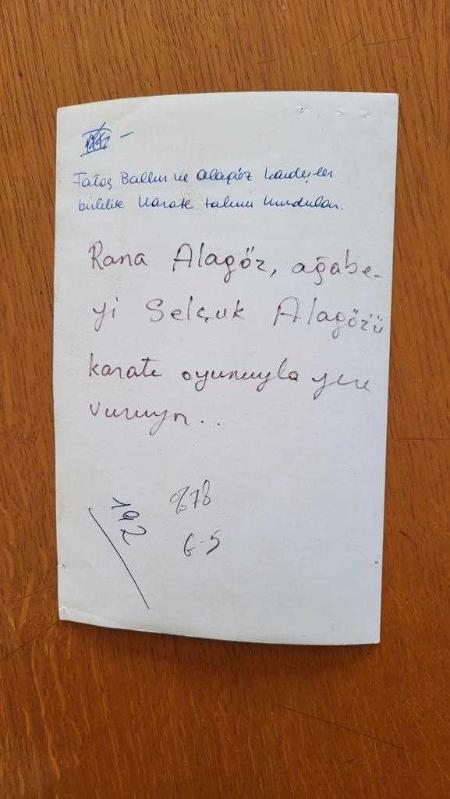 Fatoş Balkır ve Alagöz kardeşler
birlikte Karate takımı kurdular.
Rana Alagöz, ağabe-
yi Selçuk Alagöz'ü
karate oyunuyla yere
vuruyor..
192
678
6-5